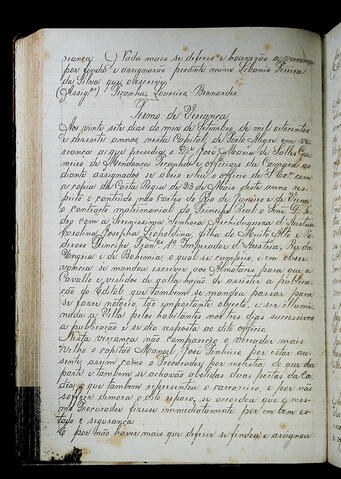 reança. Nada mais se deferio e houverão a vereança
por finda e assignarão perante mim Libanio Pereira
da Silva que o escrevy
(Assigos) Peçanha, Loureiro, Bernardes
Termo de Vereança
Aos vinte sete dias do mez de Setembro, de mil oitocentos
e dezesete annos nesta Capital, de Porto Alegre em ve-
reança a que presedio o Dr João Maria de Ga-
meiro de Mendonça Peçanha, e officiaes da Camara ao
diante assignados se abrio e leu o officio de S. Exa. com
a copia da Carta Regia de 23 de Maio deste anno res-
peito o conteúdo nas Cortes do Rio de Janeiro e de Vienna
o contracto matrimonial do Principe Real o Snr D. Pe-
dro com a Serenissima Senhora Archeduqueza d'Austria
Carolina Josepha Leopoldina, filha do Muito Alto e Po-
deroso Principe Franco 1º Imperador d'Austria, Rei da
Ungria e de Bohemia, o qual se cumprio, e em obser-
vancia se mandou escrever aos Almotaces para que a
Cavallo e vestidos de galla hajão de assistir a publica-
ção do Edital que tambem se mandou passar para
se fazer notorio, tão importante objecto, e ser illumi-
nada a Villa pelos habitantes nos tres dias successivos
a publicação e se dio resposta ao dito officio.
Nesta vereança não compareceo o vereador mais
velho o capitão Manoel José Pinheiro por estar au-
sente, assim como o Procurador por molestia, do que da
parte e tambem se acharão abatidas duas portas da Ca-
dea que tambem representou o carcereiro, e por não
soffrer demora o dito reparo, se accordou que o mes-
mo Procurador fizesse immediatamente por em bom es-
tado e segurança
E por não haver mais que deferir se findou e assignou